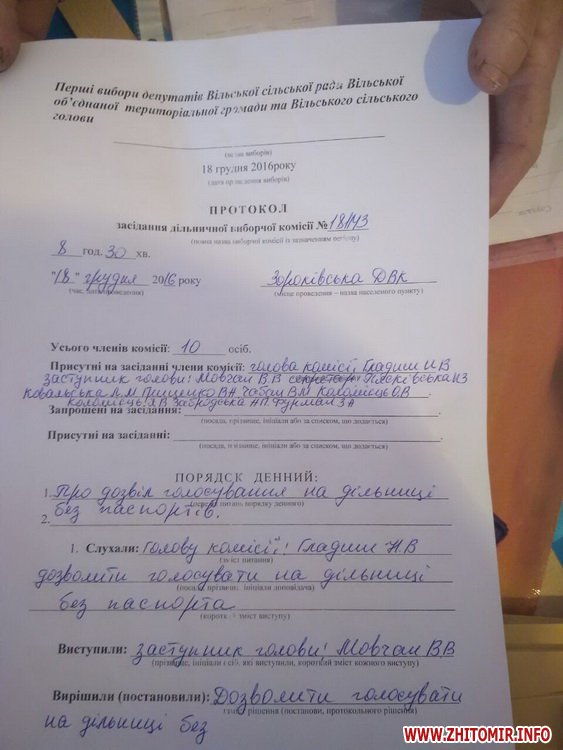 Перші вибори депутатів Вільської сільської ради Вільської
об’єднаної територіальної громади та Вільського сільського
голови
(назва виборів)
18 грудня 2016року
(дата проведення виборів)
ПРОТОКОЛ
засідання дільничної виборчої комісії №181143
(повна назва виборчої комісії із зазначенням регіону)
8 год. 30 хв.
"18" грудня 2016 року Зороківська ДВК
(час, дата проведення) (місце проведення – назва населеного пункту)
Усього членів комісії: 10 осіб.
Присутні на засіданні члени комісії: голова комісії Гладиш Н В
заступник голови: Мовчан В.В секретар
Ковальська Л.М Пищенко В.Н Чабан В.М Коломієць О.В
Коломієць Л.В Забродська Н П Фурман З А
Запрошені на засідання:
(посада, прізвище, ініціали або за списком, що додається)
Присутні на засіданні:
(посада, прізвище, ініціали або за списком, що додається)
ПОРЯДОК ДЕННИЙ:
1. Про дозвіл голосування на дільниці
(перелік питань порядку денного)
2. без паспортів.
1. Слухали: Голову комісії: Гладиш Н.В
(зміст питання)
дозволити голосувати на дільниці
(посада, прізвище, ініціали доповідача)
без паспорта
(короткий зміст виступу)
Виступили: заступник голови: Мовчан В.В
(прізвище, ініціали осіб, які виступили, короткий зміст кожного виступу)
Вирішили (постановили): Дозволити голосувати
(зміст рішення (постанови, протокольного рішення)
на дільниці без
WWW.ZHITOMIR.INFO